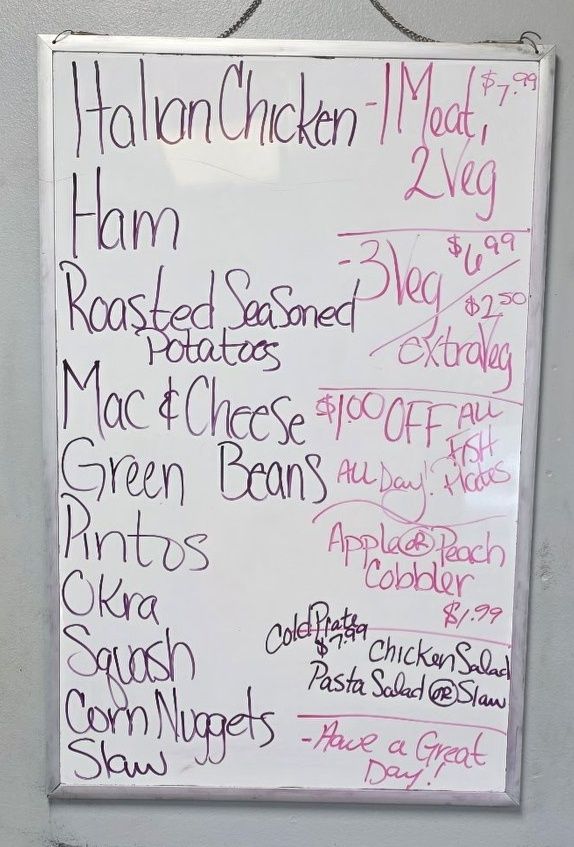 Italian Chicken
Ham
Roasted Seasoned
Potatoes
Mac & Cheese
Green Beans
Pintos
Okra
Squash
Corn Nuggets
Slaw
-1 Meat, $7.99
2 Veg
-3 Veg $6.99
$2.50
extra Veg
$1.00 OFF ALL
FISH
ALL Day! Plates
Apple OR Peach
Cobbler
$1.99
Cold Plate
$7.99
Chicken Salad
Pasta Salad OR Slaw
-Have a Great
Day!